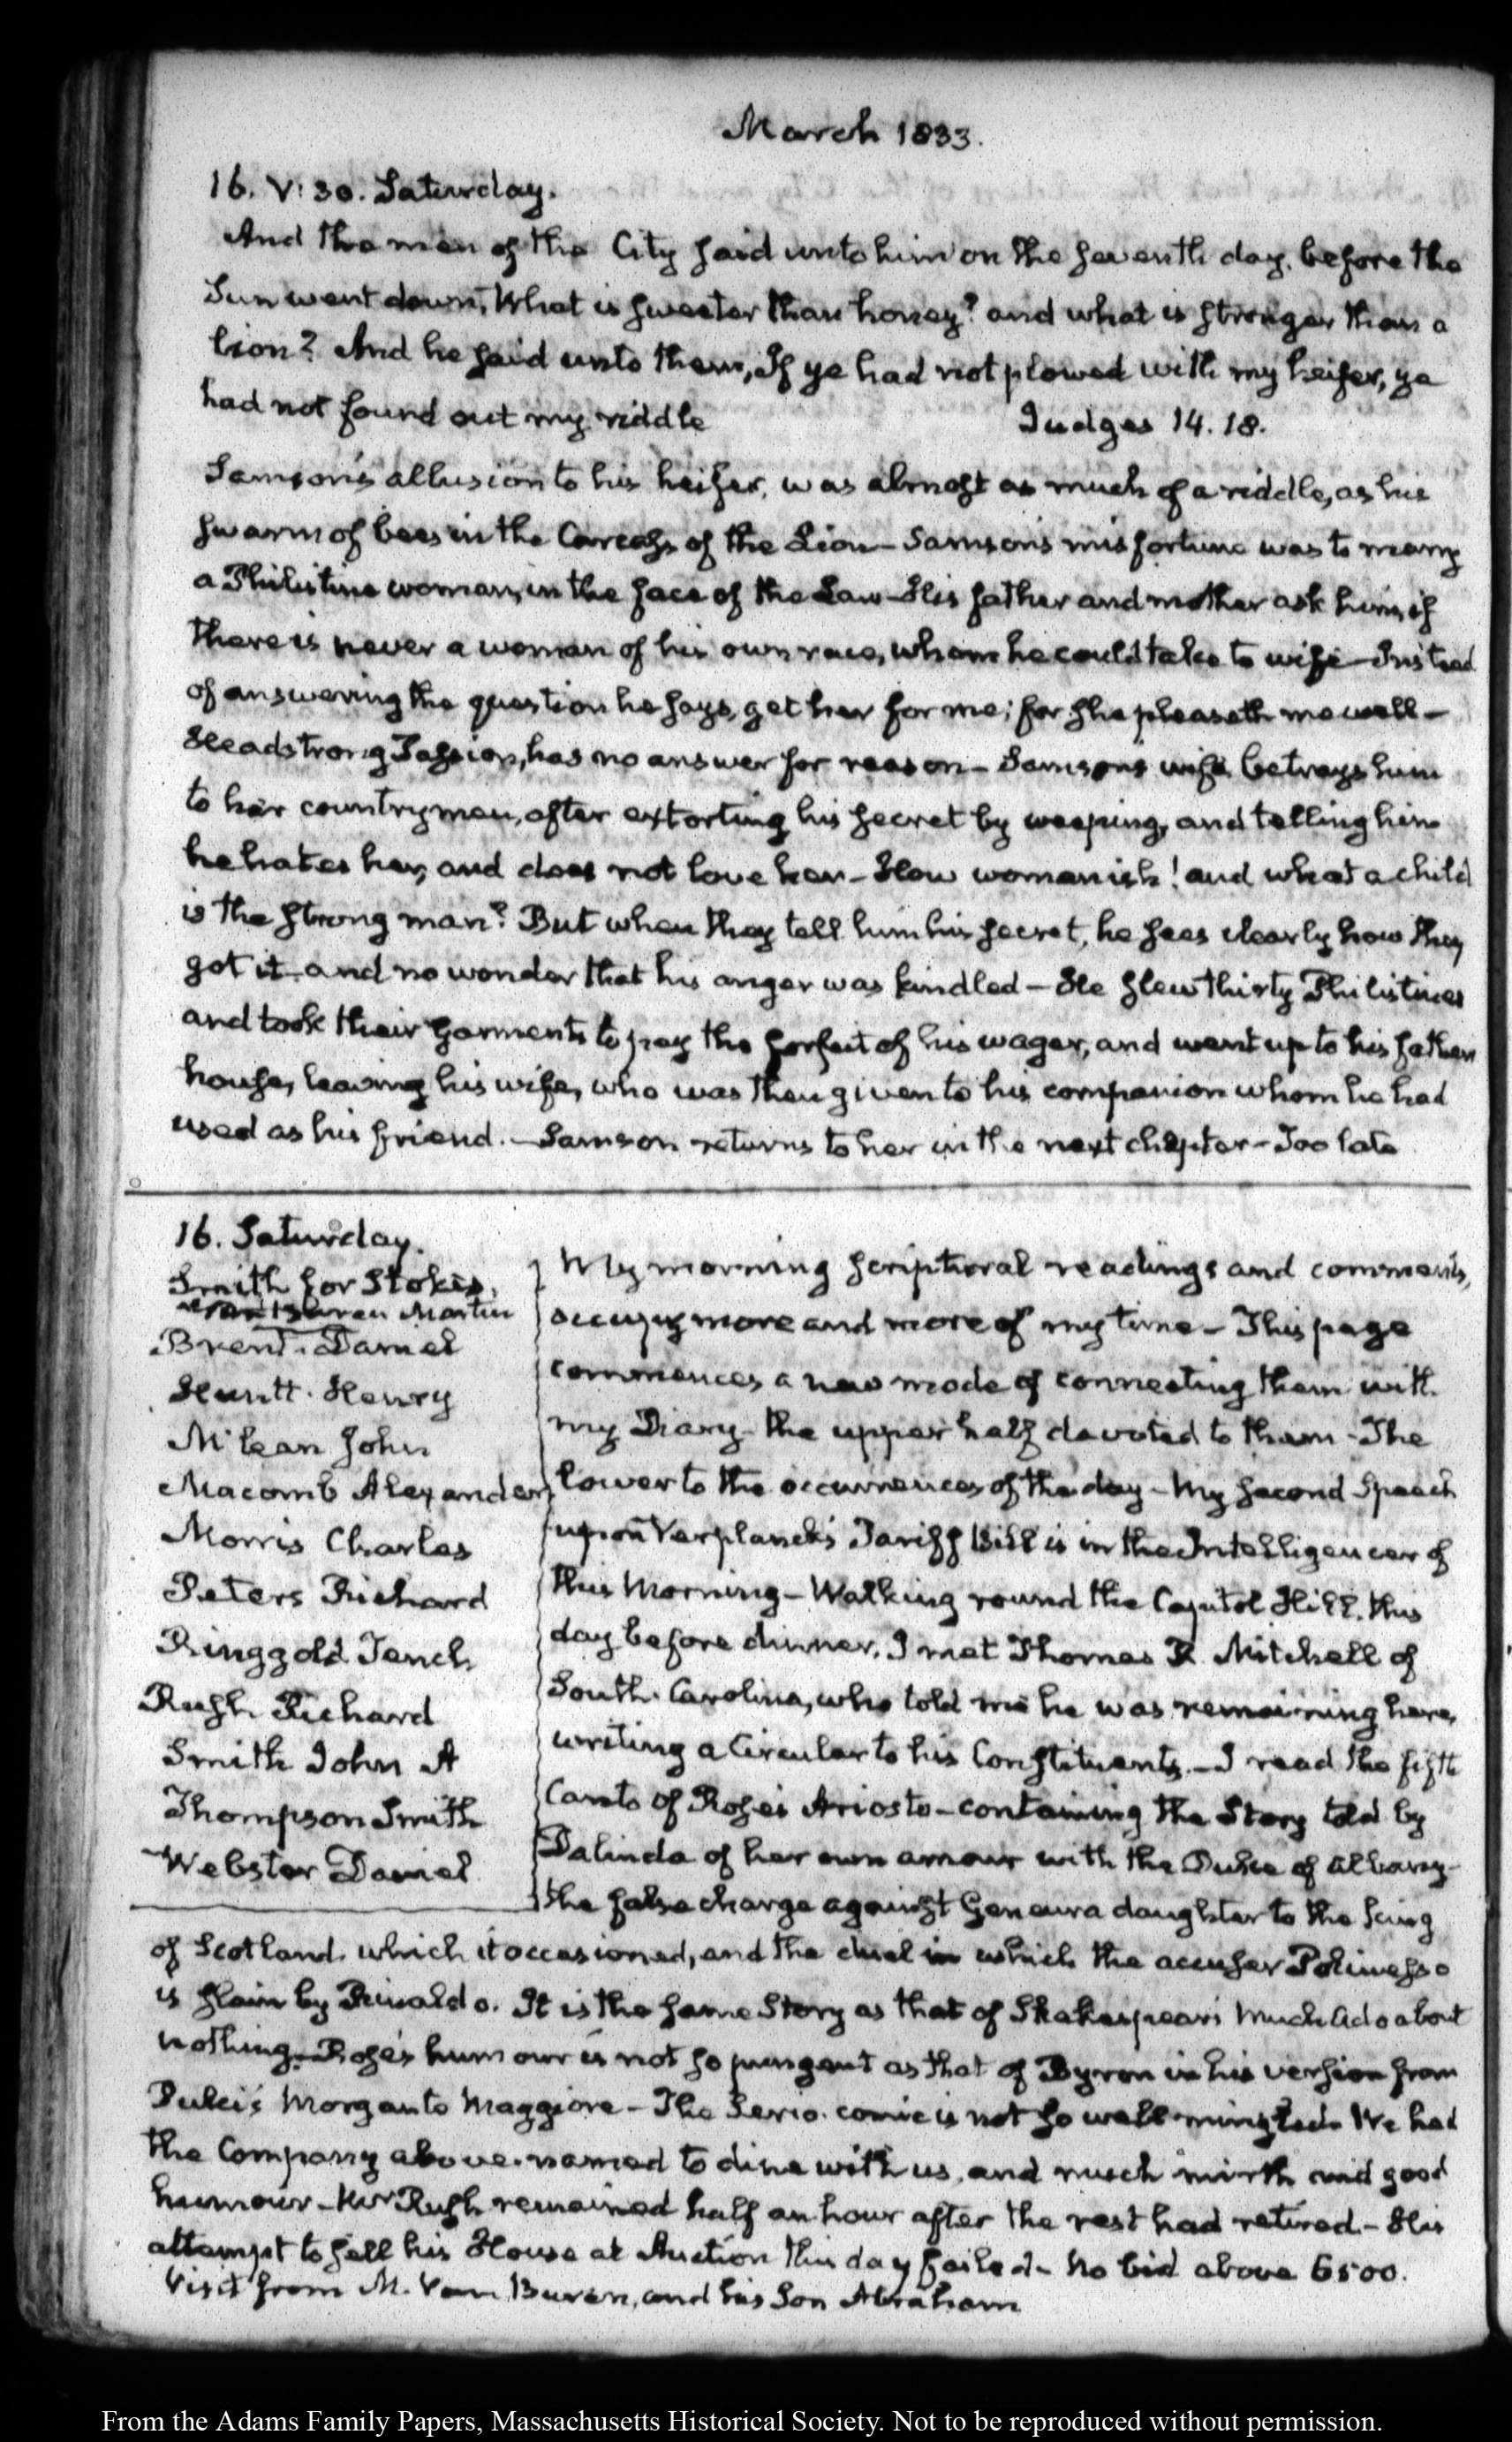 March 1833.
16. V: 30. Saturday.
And the men of the City said unto him on the seventh day, before the
Sun went down, What is sweeter than honey? and what is stronger than a
lion? And he said unto them, If ye had not plowed with my heifer, ye
had not found out my riddle Judges 14. 18.
Samson's allusion to his heifer, was almost as much of a riddle, as his
swarm of bees in the Carcass of the Lion – Samson's misfortune was to marry
a Philistine woman, in the face of the Law – His father and mother ask him, if
there is never a woman of his own race, whom he could take to wife – Instead
of answering the question he says, get her for me; for she pleaseth me well –
Headstrong Passion, has no answer for reason – Samsons wife betrays him
to her countrymen, after extorting his secret by weeping, and telling him
he hates her, and does not love her – How womanish! and what a child
is the strong man? But when they tell him his secret, he sees clearly how they
got it – and no wonder that his anger was kindled – He slew thirty Philistines
and took their Garments to pay the forfeit of his wager, and went up to his fathers
house, leaving his wife, who was then given to his companion whom he had
used as his friend. – Samson returns to her in the next chapter – Too late
16. Saturday.
Smith for Stokes.
Van Buren Martin
Brent. Daniel
Huntt. Henry
McLean John
Macomb Alexander
Morris Charles
Peters Richard
Ringgold Tench
Rush Richard
Smith John A
Thompson Smith
Webster Daniel
My morning scriptural readings and comments,
occupy more and more of my time – This page
commences a new mode of connecting them with
my Diary – the upper half devoted to them – The
lower to the occurrences of the day – My second Speech
upon Verplanck's Tariff Bill is in the Intelligencer of
this Morning – Walking round the Capitol Hill, this
day before dinner, I met Thomas R. Mitchell of
South. Carolina, who told me he was remaining here,
writing a Circular to his Constituents. – I read the fifth
Canto of Rose's Ariosto – containing the Story told by
Dalinda of her own amour with the Duke of Albany –
the false charge against Geneura daughter to the king
of Scotland. which it occasioned, and the duel in which the accuser Polinesso
is slain by Rinaldo. It is the same Story as that of Shakespear's Much Ado about
nothing. Rose's humour is not so pungent as that of Byron in his version from
Pulci's Morgante Maggiore – The Serio. comic is not so well mingled. We had
the Company above. named to dine with us, and much mirth and good
humour – Mr Rush remained half an hour after the rest had retired – His
attempt to sell his House at Auction this day failed – No bid above 6500.
Visit from M. Van Buren, and his Son Abraham
From the Adams Family Papers, Massachusetts Historical Society. Not to be reproduced without permission.